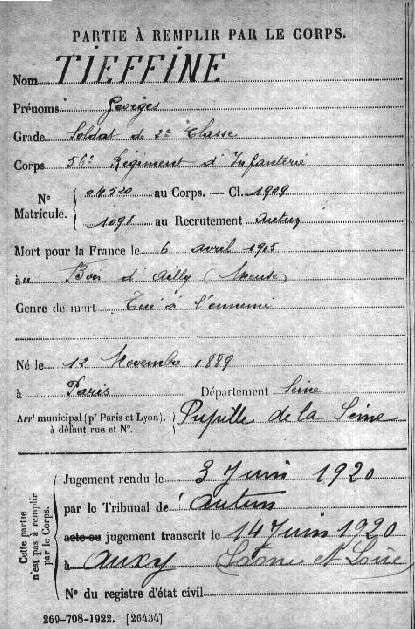 PARTIE À REMPLIR PAR LE CORPS.
Nom TIEFFINE
Prénoms Georges
Grade Soldat de 2e Classe
Corps 56e Régiment d'Infanterie
N° Matricule. { 04520 au Corps. — Cl. 1909
1091 au Recrutement Autun
Mort pour la France le 6 avril 1915
à Bois d'Ailly (Meuse)
Genre de mort Tué à l'ennemi
Né le 12 Novembre 1889
à Paris Département Seine
Arrt municipal (pr Paris et Lyon), à défaut rue et N°. } Pupille de la Seine
Cette partie n'est pas à remplir par le Corps.
Jugement rendu le 3 Juin 1920
par le Tribunal de Autun
acte ou jugement transcrit le 14 Juin 1920
à Auxy Saône et Loire
N° du registre d'état civil
260-708-1922. [26434]